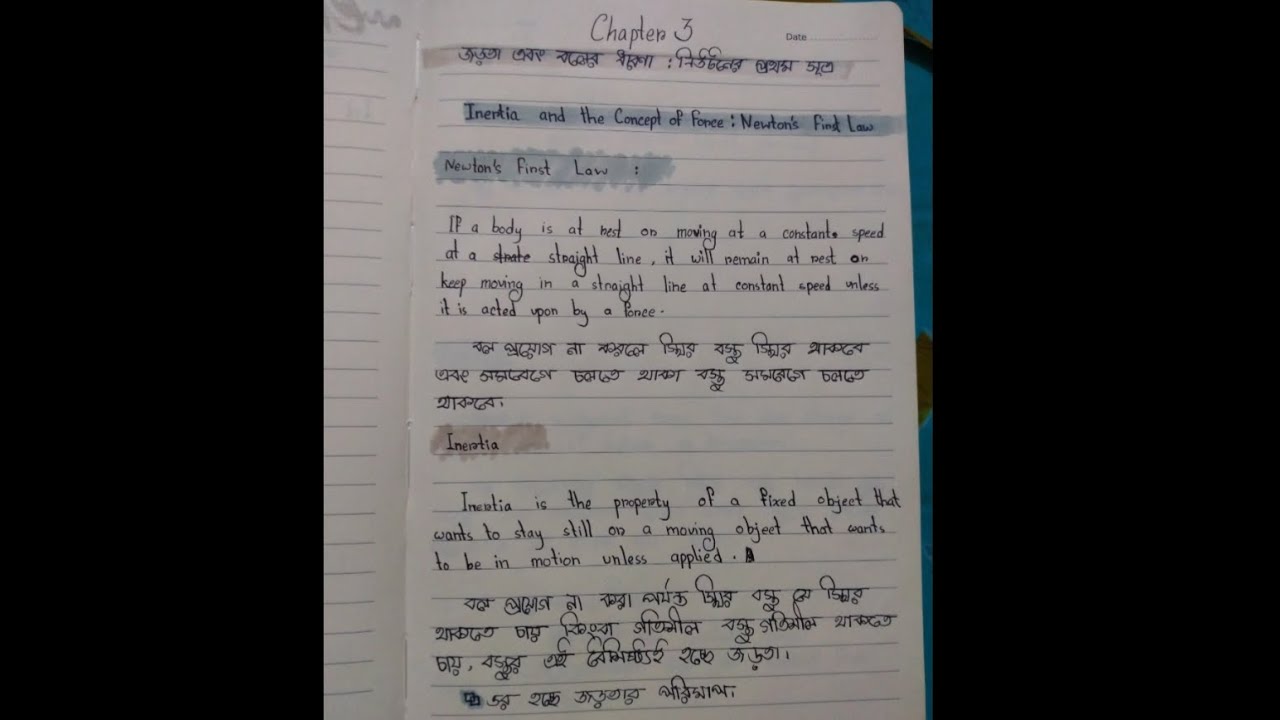 Chapter 3
Date
জড়তা এবং বলের ধারণা : নিউটনের প্রথম সূত্র
Inertia and the Concept of Force : Newton's First Law
Newton's First Law :
If a body is at rest or moving at a constant speed
at a straight line, it will remain at rest or
keep moving in a straight line at constant speed unless
it is acted upon by a force.
বল প্রয়োগ না করলে স্থির বস্তু স্থির থাকবে
এবং সমবেগে চলতে থাকা বস্তু সমবেগে চলতে
থাকবে।
Inertia
Inertia is the property of a fixed object that
wants to stay still or a moving object that wants
to be in motion unless applied.
বল প্রয়োগ না করা পর্যন্ত স্থির বস্তু যে স্থির
থাকতে চায় কিংবা গতিশীল বস্তু গতিশীল থাকতে
চায়, বস্তুর এই বৈশিষ্ট্যই হচ্ছে জড়তা।
ভর হচ্ছে জড়তার পরিমাপ।